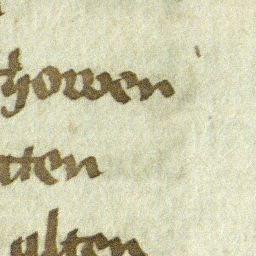 howen
tten
alten